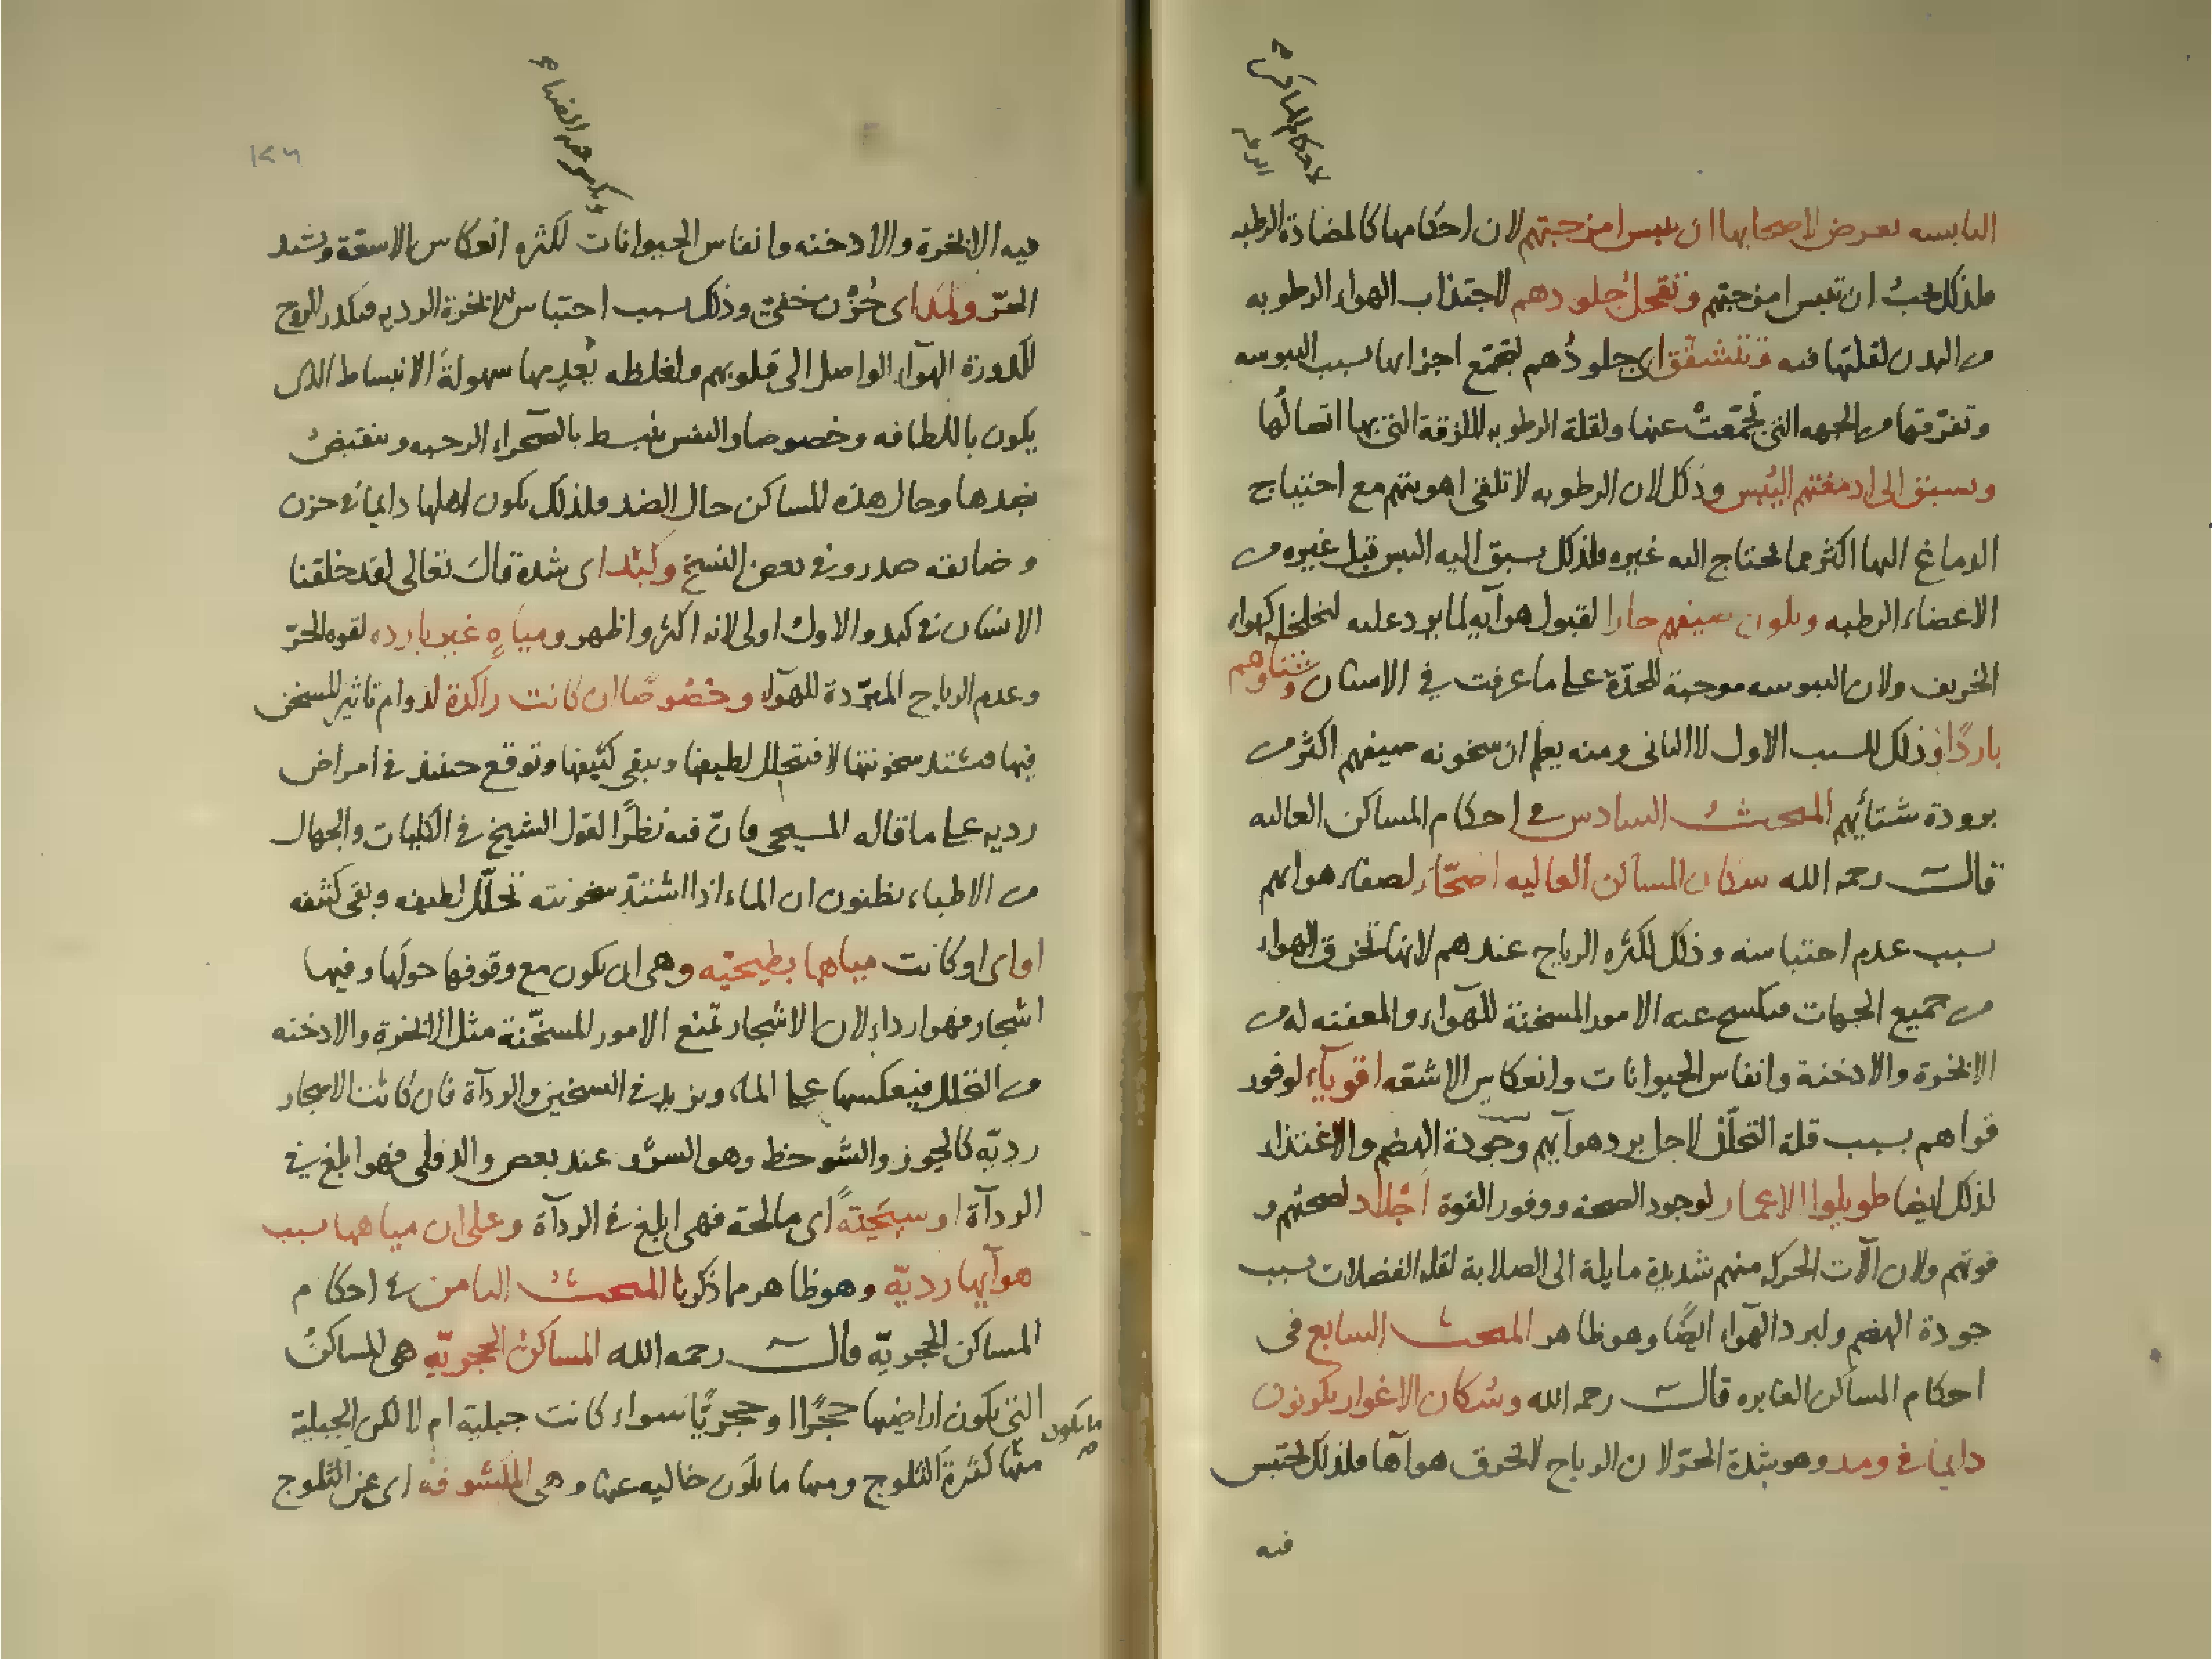 اليابسه تعرض لاصحابها ان تيبس امزجتهم لان احكامها كالمضادة للرطبه
فلذلك يجب ان تيبس امزجتهم وتقحل جلودهم لاجتذاب الهواء الرطوبه
من البدن لقلتها فيه وتتشقق اى جلودهم لتجمّع اجزائها بسبب اليبوسه
وتفرّقها من الجهه التى تجمّعت عنها ولقلة الرطوبه اللزقة التى بها اتصالها
ويسبق الى ادمغتهم اليبس وذلك لان الرطوبه لا تلفى اهويتهم مع احتياج
الدماغ اليها اكثر مما يحتاج اليه غيره فلذلك يسبق اليه اليبس قبل غيره من
الاعضاء الرطبه ويكون صيفهم حارا لقبول هوآيه لما يرد عليه لتخلخله كهواء
الخريف ولان اليبوسه موجبة للحدّة على ما عرفت فى الاسنان وشتاوهم
باردًا وذلك للسبب الاول لا الثانى ومنه يعلم ان سخونه صيفهم اكثر من
برودة شتائهم المبحث السادس فى احكام المساكن العاليه
قالـــ رحمه الله سكان المساكن العاليه اصحّاء لصفاء هوايهم
بسبب عدم احتباسه وذلك لكثره الرياح عندهم لانها تخرق الهواء
من جميع الجهات فيكسح عنه الامور المسخنة للهوآء والمعفنه له من
الابخرة والادخنة وانفاس الحيوانات وانعكاس الاشعّه اقويآء لوفور
قواهم بسبب قلة التحلّل لاجل برد هوآيهم وجودة الهضم والاغتذاء
لذلك ايضا طويلوا الاعمار لوجود الصحة ووفور القوة اجلاد لصحتهم و
قوتهم ولان آلات الحركه منهم شديدة مايلة الى الصلابة لقله الفضلات بسبب
جودة الهضم ولبرد الهوآء ايضًا وهو ظاهر المبحث السابع فى
احكام المساكن الغايره قالـــ رحمه الله وسكان الاغوار يكونون
دايما فى ومد وهو شدة الحرّ لان الرياح لا تخرق هواها فلذلك تحتبس
فيه
١٢٦
فيه الابخرة والادخنه وانفاس الحيوانات لكثره انعكاس الاشعّة ويشتد
الحرّ وكمد اى حُزْن خفىّ وذلك بسبب احتباس الابخرة الرديه فيكدر الروح
لكدورة الهوآء الواصل الى قلوبهم ولغلظه يعدمها سهولة الانبساط الذى
يكون باللطافه وخصوصا والنفس ينبسط بالصحراء الرحبه وينقبض
بضدها وحال هذه المساكن حال الضد فلذلك يكون اهلها دايما فى حزن
وضايقه صدر وفى بعض النسخ وكَبَد اى شدة قال تعالى لقد خلقنا
الانسان فى كبد والاول اولى لانه اكثر واظهر ومياهٍ غير بارده لقوه الحرّ
وعدم الرياح المبرّدة للهوآء وخصوصًا ان كانت راكدة لدوام تاثير المسخن
فيها فيشتد سخونتها لا فيتحلل لطيفها ويبقى كثيفها وتوقع حينئذ فى امراض
رديه على ما قاله المسيحى فانّ فيه نظرًا لقول الشيخ فى الكليات والجهال
من الاطباء يظنون ان الماء اذا اشتدّ سخونته تحلّل لطيفه وبقى كثيفه
او اى او كانت مياهها بطيحيّه وهى ان يكون مع وقوفها حولها وفيها
اشجار فهو ارداء لان الاشجار تمنع الامور المسخّنة مثل الابخرة والادخنه
من التحلل فيعكسها على الماء ويزيد فى السخين والردآة فان كانت الاشجار
رديّه كالجوز والشوحظ وهو السرو عند بعض والدفلى فهو ابلغ فى
الردآة او سبخيّةً اى مالحة فهى ابلغ فى الردآة وعلى ان مياهها بسبب
هوآيها رديّه وهو ظاهر مما ذكرنا المبحث الثامن فى احكام
المساكن الحجريّه قالـــ رحمه الله المساكن الحجريّه هى المساكن
التى يكون اراضيها حجرًا او حجريّا سواء كانت جبلية ام لا لكن الجبلية
منها ما يكون كثيرة الثلوج ومنها ما يكون خاليه عنها وهى المكشوفه اى عن الثلوج